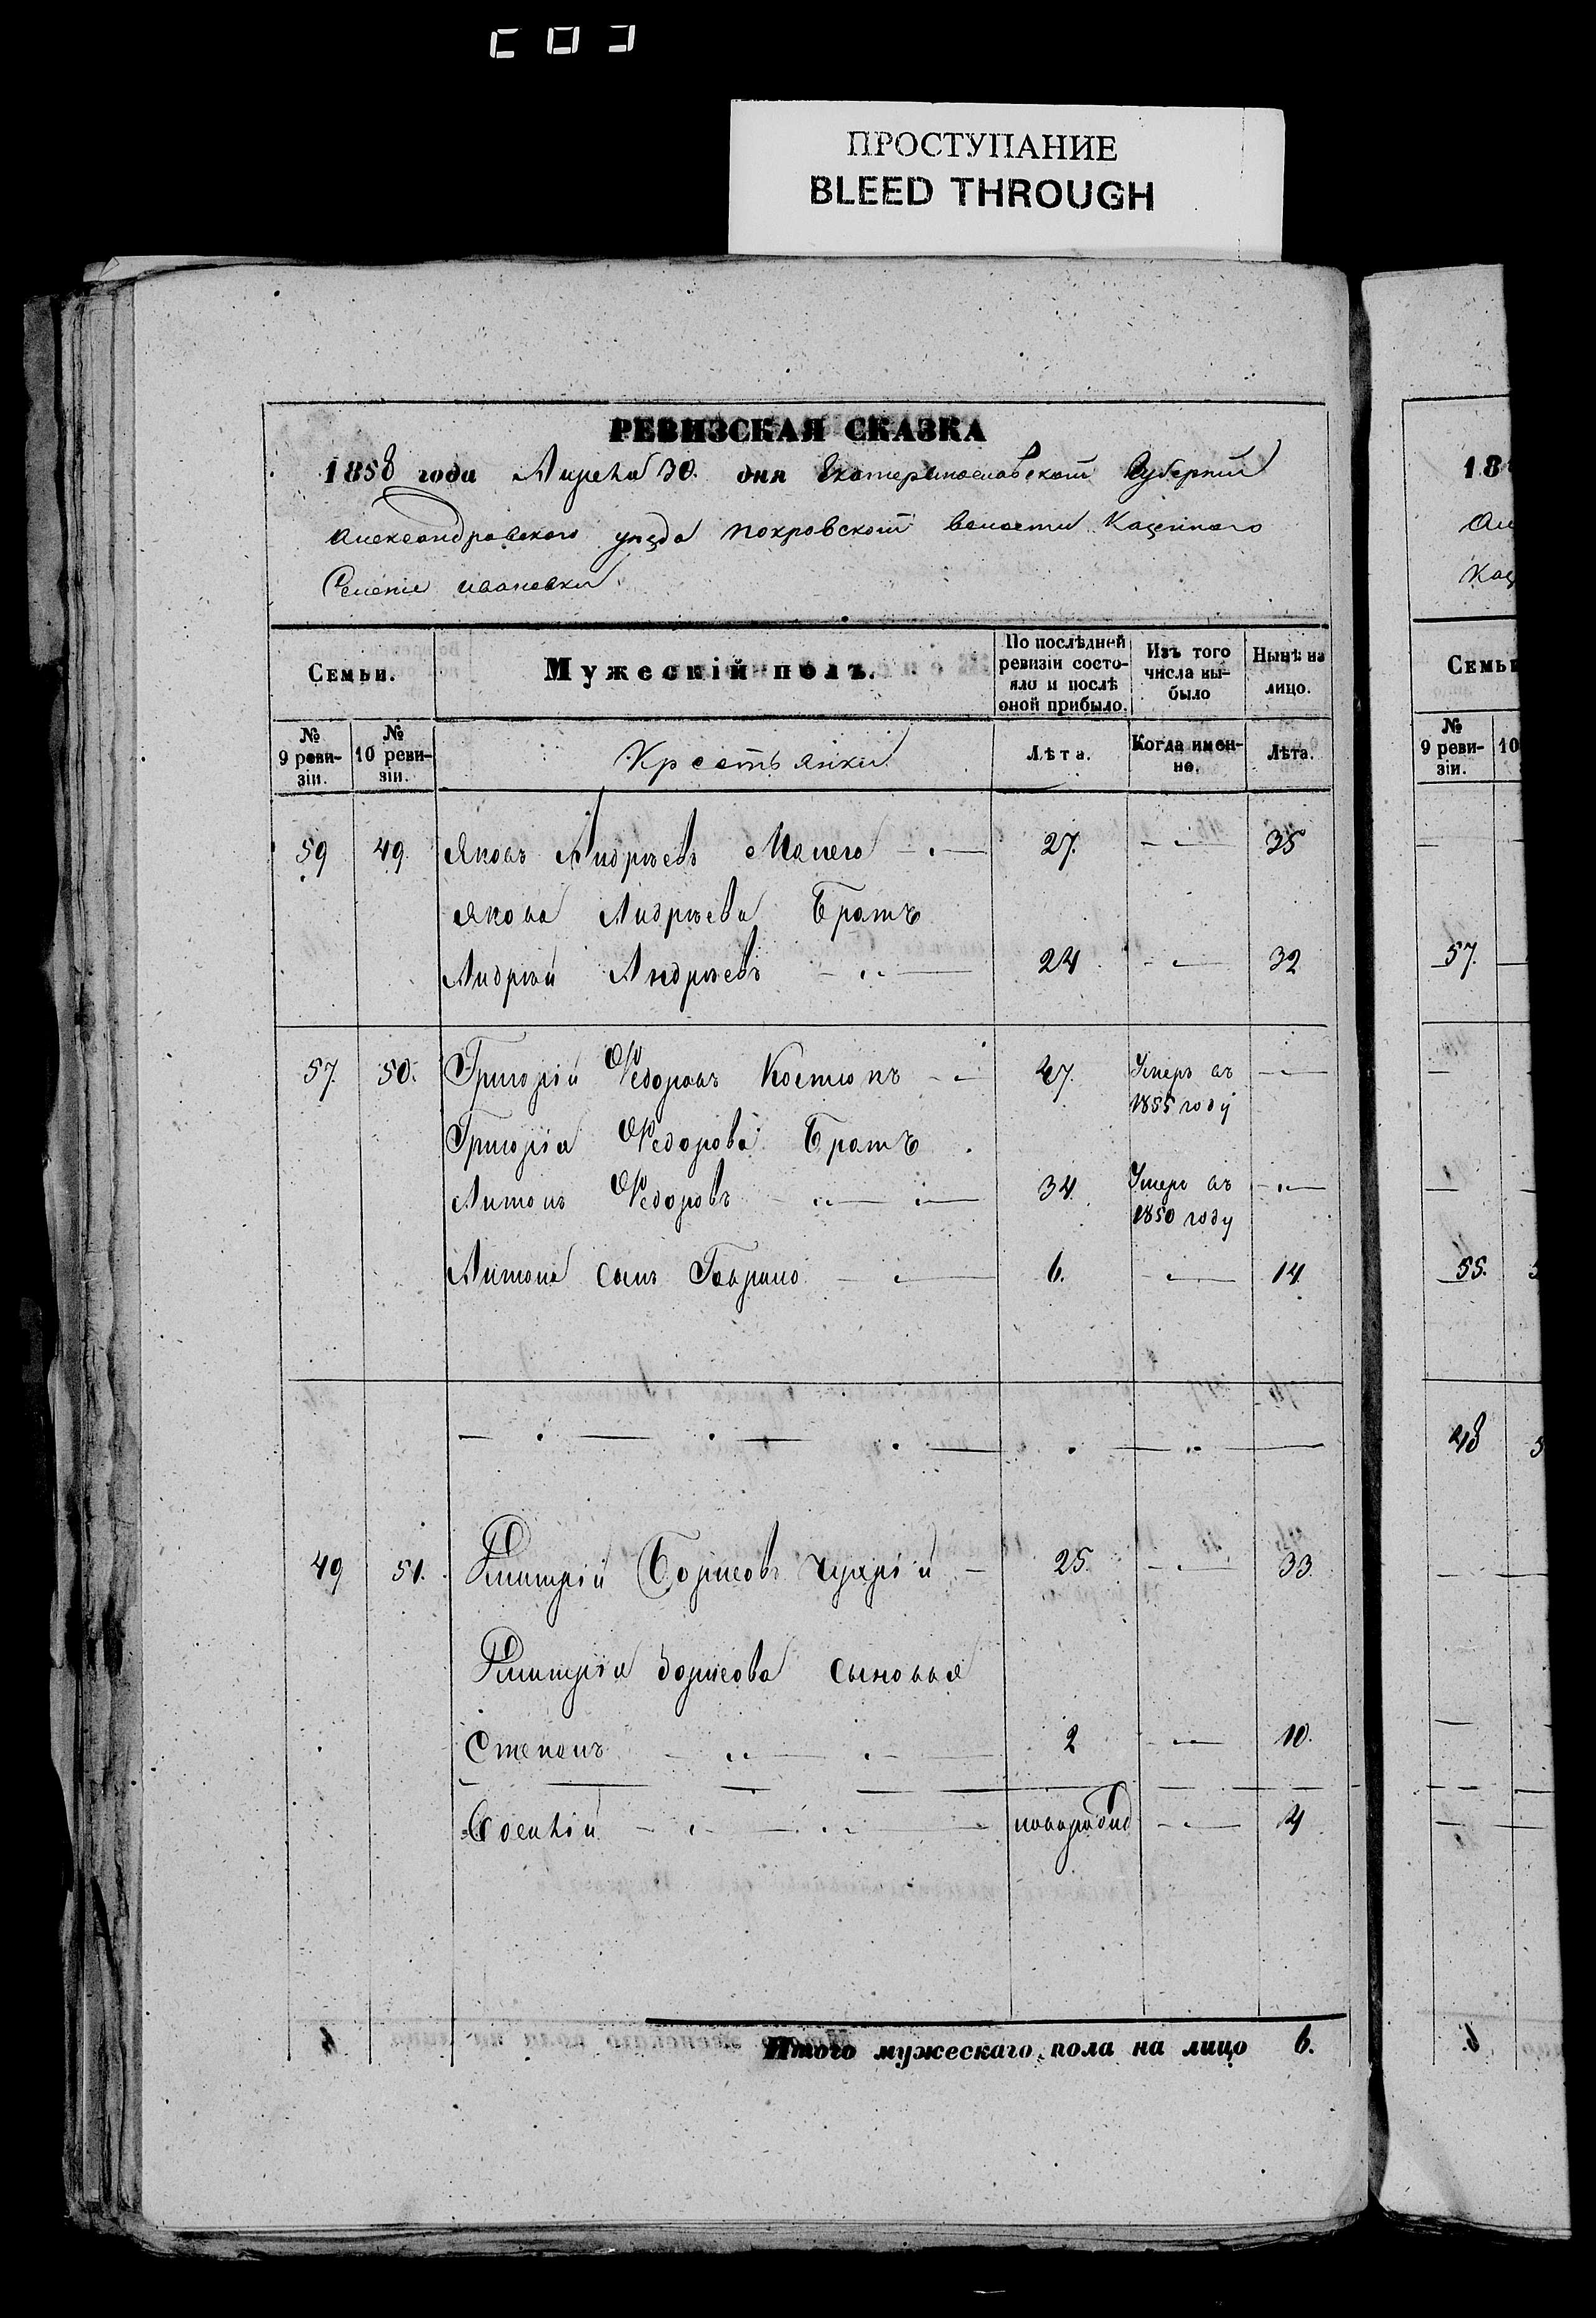 ПРОСТУПАНИЕ
BLEED THROUGH
РЕВИЗСКАЯ СКАЗКА
1858 года Апреля 30. дня Екатеринославской Губернии
Александровского уезда Покровской волости Казенного
Селение ивановки
Семьи. Мужескій полъ. По послѣдней ревизіи состояло и послѣ оной прибыло. Изъ того числа выбыло Нынѣ на лицо.
№ 9 ревизіи. № 10 ревизіи. Крестьянки Лѣта. Когда именно. Лѣта.
59 49. Яковъ Андрѣевъ 27. 35
Якова Андрѣева Братъ
Андрѣй Андрѣевъ 24 32
57. 50. Григорій Федоровъ Костюкъ 47. Умеръ въ
1855 году
Григорія Федорова Братъ
Антонъ Федоровъ 34. Умеръ въ
1850 году
Антона сынъ Гаврило 6. 14.
49 51. Дмитрій Борисовъ 25. 33.
Дмитрія Борисова сыновья
Степанъ 2 10.
новорожд 4
Итого мужескаго пола на лицо 6.
18
Ал
Каз
Семьи
№ 9 ревизіи. 10
57.
55. 5
48 5